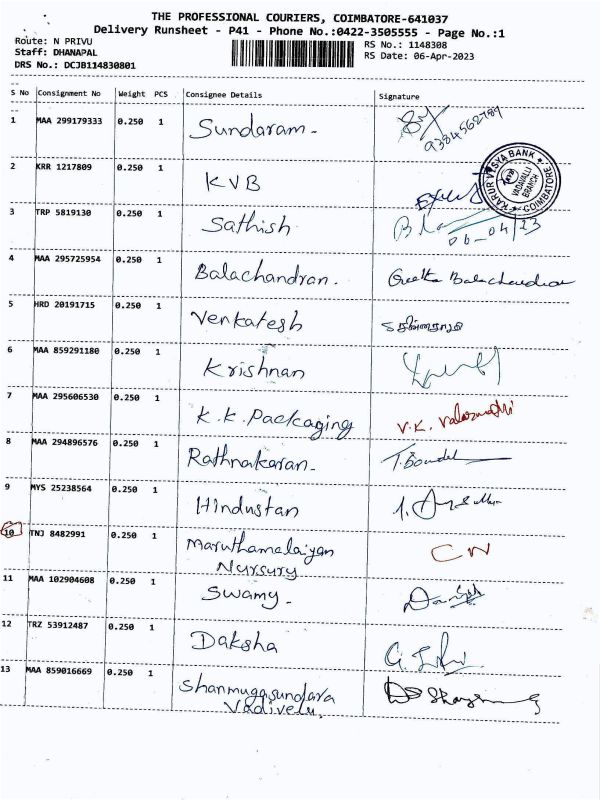 THE PROFESSIONAL COURIERS, COIMBATORE-641037
Delivery Runsheet - P41 - Phone No.:0422-3505555 - Page No.:1
Route: N PRIVU
Staff: DHANAPAL
DRS No.: DCJB114830801
RS No.: 1148308
RS Date: 06-Apr-2023
S No Consignment No Weight PCS Consignee Details Signature
1 MAA 299179333 0.250 1 Sundaram-
9384562789
2 KRR 1217809 0.250 1 KVB
KARUR VYSYA BANK
VADAVALLI
BRANCH
COIMBATORE
3 TRP 5819130 0.250 1 Sathish
06-04/23
4 MAA 295725954 0.250 1 Balachandran. Geetha Balachandran
5 HRD 20191715 0.250 1 Venkatesh
6 MAA 859291180 0.250 1 Krishnan
7 MAA 295606530 0.250 1 K.K. Packaging V.K. Valarmathi
8 MAA 294896576 0.250 1 Rathnakaran-
9 MYS 25238564 0.250 1 Hindustan
10 TNJ 8482991 0.250 1 Maruthamalaiyan
Nursury
CW
11 MAA 102904608 0.250 1 Swamy-
12 TRZ 53912487 0.250 1 Daksha
13 MAA 859016669 0.250 1 Shanmugasundara
Vadivelu,